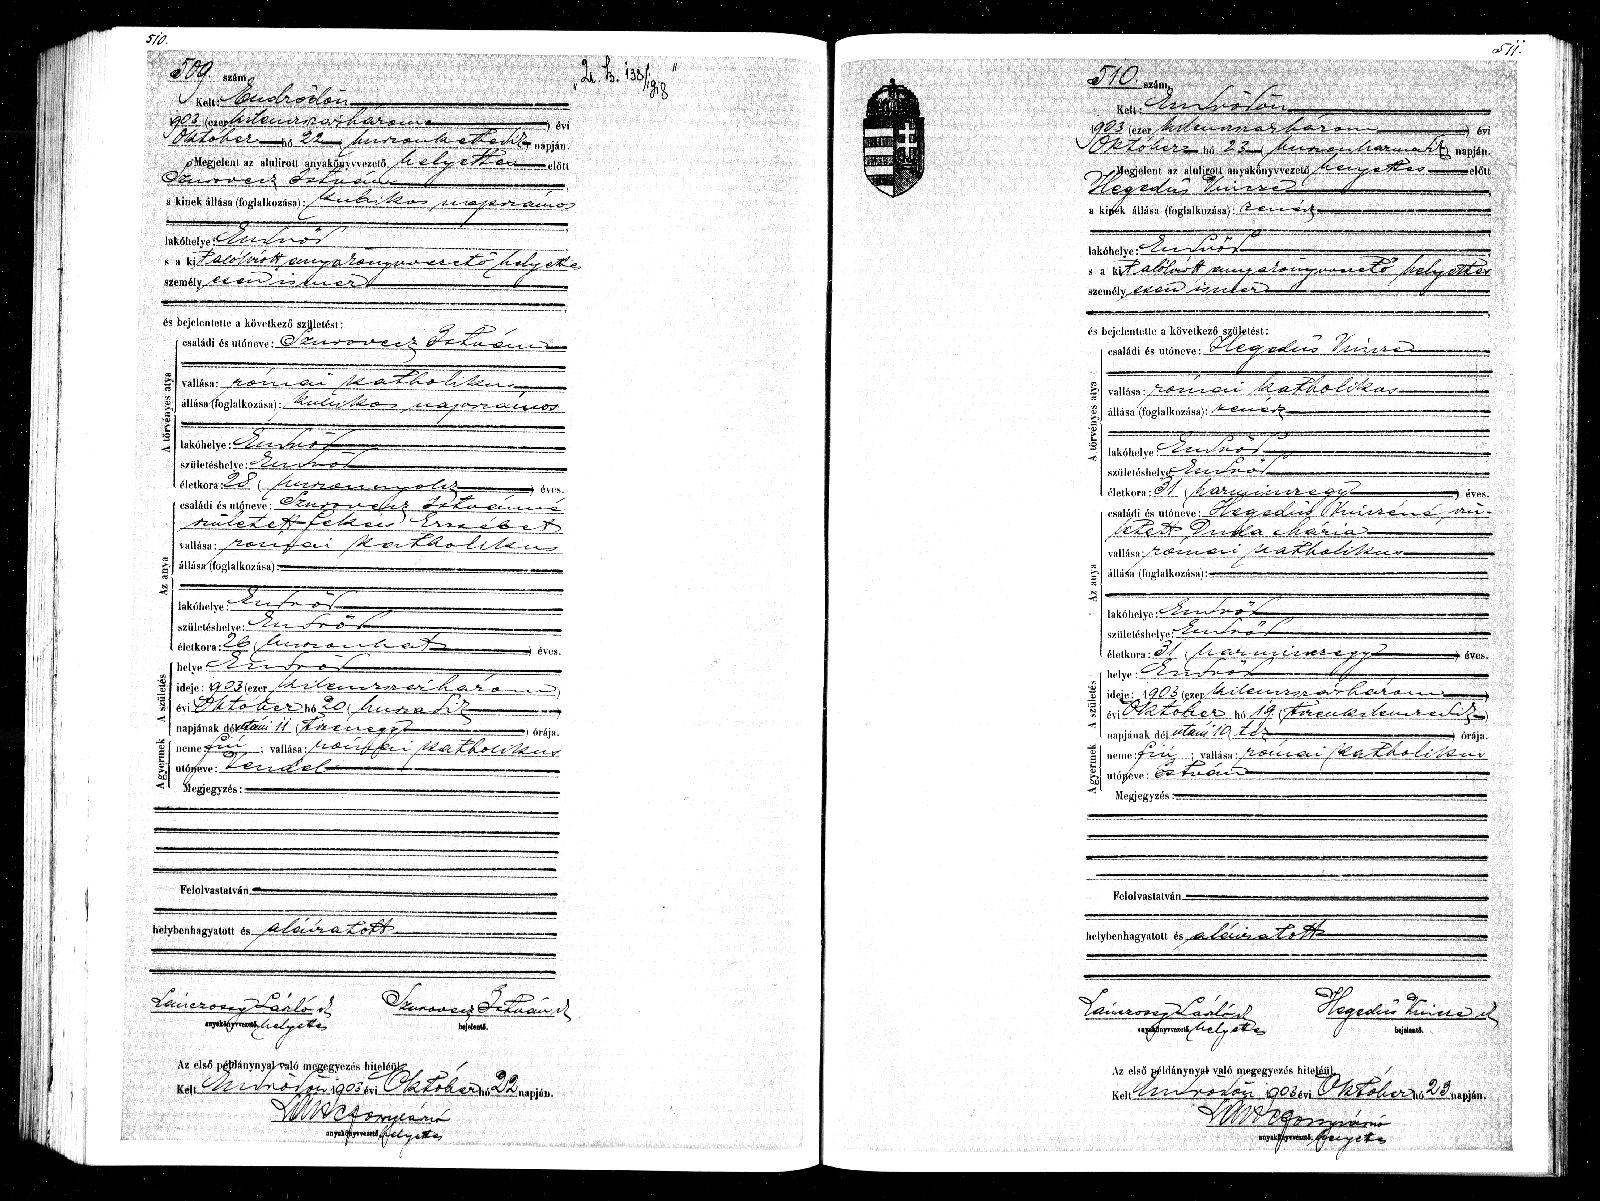 510.
509 szám
Kelt: Endrődön
903 (ezer kilencszázhárom) évi
Október hó 22 (huszonkettedik) napján.
Megjelent az alulirott anyakönyvvezető helyettes előtt
Szurovecz István
a kinek állása (foglalkozása): kubikos napszámos
lakóhelye: Endrőd
s a kit alólirott anyakönyvvezető helyettes
személyesen ismer
és bejelentette a következő születést:
A törvényes atya
családi és utóneve: Szurovecz István
vallása: római katholikus
állása (foglalkozása): kubikos napszámos
lakóhelye: Endrőd
születéshelye: Endrőd
életkora: 28 (huszonnyolcz) éves.
Az anya
családi és utóneve: Szurovecz Istvánné
született Fekécs Erzsébet
vallása: római katholikus
állása (foglalkozása):
lakóhelye: Endrőd
születéshelye: Endrőd
életkora: 26 (huszonhat) éves.
A születés
helye Endrőd
ideje: 903 (ezer kilencszázhárom)
évi Október hó 20 (huszadik)
napjának dél utáni 11 (tizenegy) órája.
A gyermek
neme: fiú; vallása: római katholikus
utóneve: Vendel
Megjegyzés:
Felolvastatván
helybenhagyatott és aláiratott
Lánczossy László Szurovecz István
anyakönyvvezető helyettes bejelentő.
Az első példánynyal való megegyezés hiteléül:
Kelt Endrődön 1903 évi Október hó 22 napján.
anyakönyvvezető helyettes
511.
510 szám
Kelt: Endrődön
1903 (ezer kilencszázhárom) évi
Október hó 23 (huszonharmadik) napján.
Megjelent az alulirott anyakönyvvezető helyettes előtt
Hegedűs Vincze
a kinek állása (foglalkozása):
lakóhelye: Endrőd
s a kit alólirott anyakönyvvezető helyettes
személyesen ismer
és bejelentette a következő születést:
A törvényes atya
családi és utóneve: Hegedűs Vincze
vallása: római katholikus
állása (foglalkozása):
lakóhelye: Endrőd
születéshelye Endrőd
életkora: 31 (harminczegy) éves.
Az anya
családi és utóneve: Hegedűs Vinczéné, szü-
letett Duda Mária
vallása: római katholikus
állása (foglalkozása):
lakóhelye: Endrőd
születéshelye: Endrőd
életkora: 31 (harminczegy) éves.
A születés
helye: Endrőd
ideje: 1903 (ezer kilencszázhárom)
évi Október hó 19 (tizenkilenczedik)
napjának dél utáni 10 tíz órája.
A gyermek
neme: fiú; vallása: római katholikus
utóneve: István
Megjegyzés:
Felolvastatván
helybenhagyatott és aláiratott
Lánczossy László Hegedűs Vincze
anyakönyvvezető helyettes bejelentő.
Az első példánynyal való megegyezés hiteléül:
Kelt Endrődön 903 évi Október hó 23 napján.
anyakönyvvezető helyettes